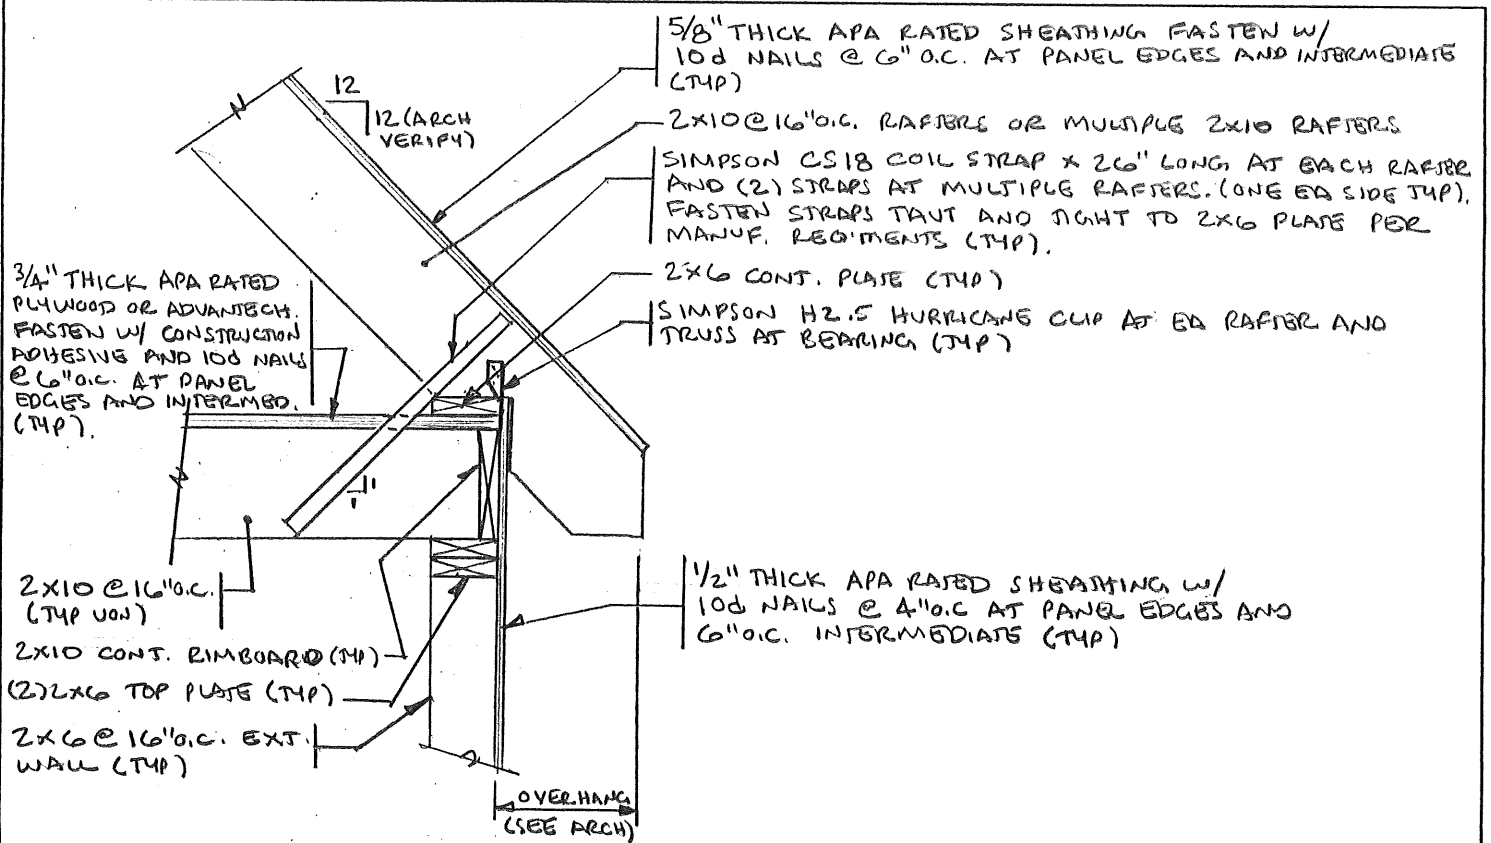 5/8" THICK APA RATED SHEATHING FASTEN W/
10d NAILS @ 6" O.C. AT PANEL EDGES AND INTERMEDIATE
(TYP)
12
12 (ARCH
VERIFY)
2X10@16"O.C. RAFTERS OR MULTIPLE 2X10 RAFTERS
SIMPSON CS18 COIL STRAP X 26" LONG AT EACH RAFTER
AND (2) STRAPS AT MULTIPLE RAFTERS. (ONE EA SIDE TYP).
FASTEN STRAPS TAUT AND TIGHT TO 2X6 PLATE PER
MANUF. REQ'MENTS (TYP).
2X6 CONT. PLATE (TYP)
SIMPSON H2.5 HURRICANE CLIP AT EA RAFTER AND
TRUSS AT BEARING (TYP)
3/4" THICK APA RATED
PLYWOOD OR ADVANTECH.
FASTEN W/ CONSTRUCTION
ADHESIVE AND 10d NAILS
@ 6"O.C. AT PANEL
EDGES AND INTERMED.
(TYP).
1
1
2X10 @16"O.C.
(TYP UON)
2X10 CONT. RIMBOARD (TYP)
(2) 2X6 TOP PLATE (TYP)
2X6 @ 16"O.C. EXT.
WALL (TYP)
1/2" THICK APA RATED SHEATHING W/
10d NAILS @ 4"O.C AT PANEL EDGES AND
6"O.C. INTERMEDIATE (TYP)
OVERHANG
(SEE ARCH)